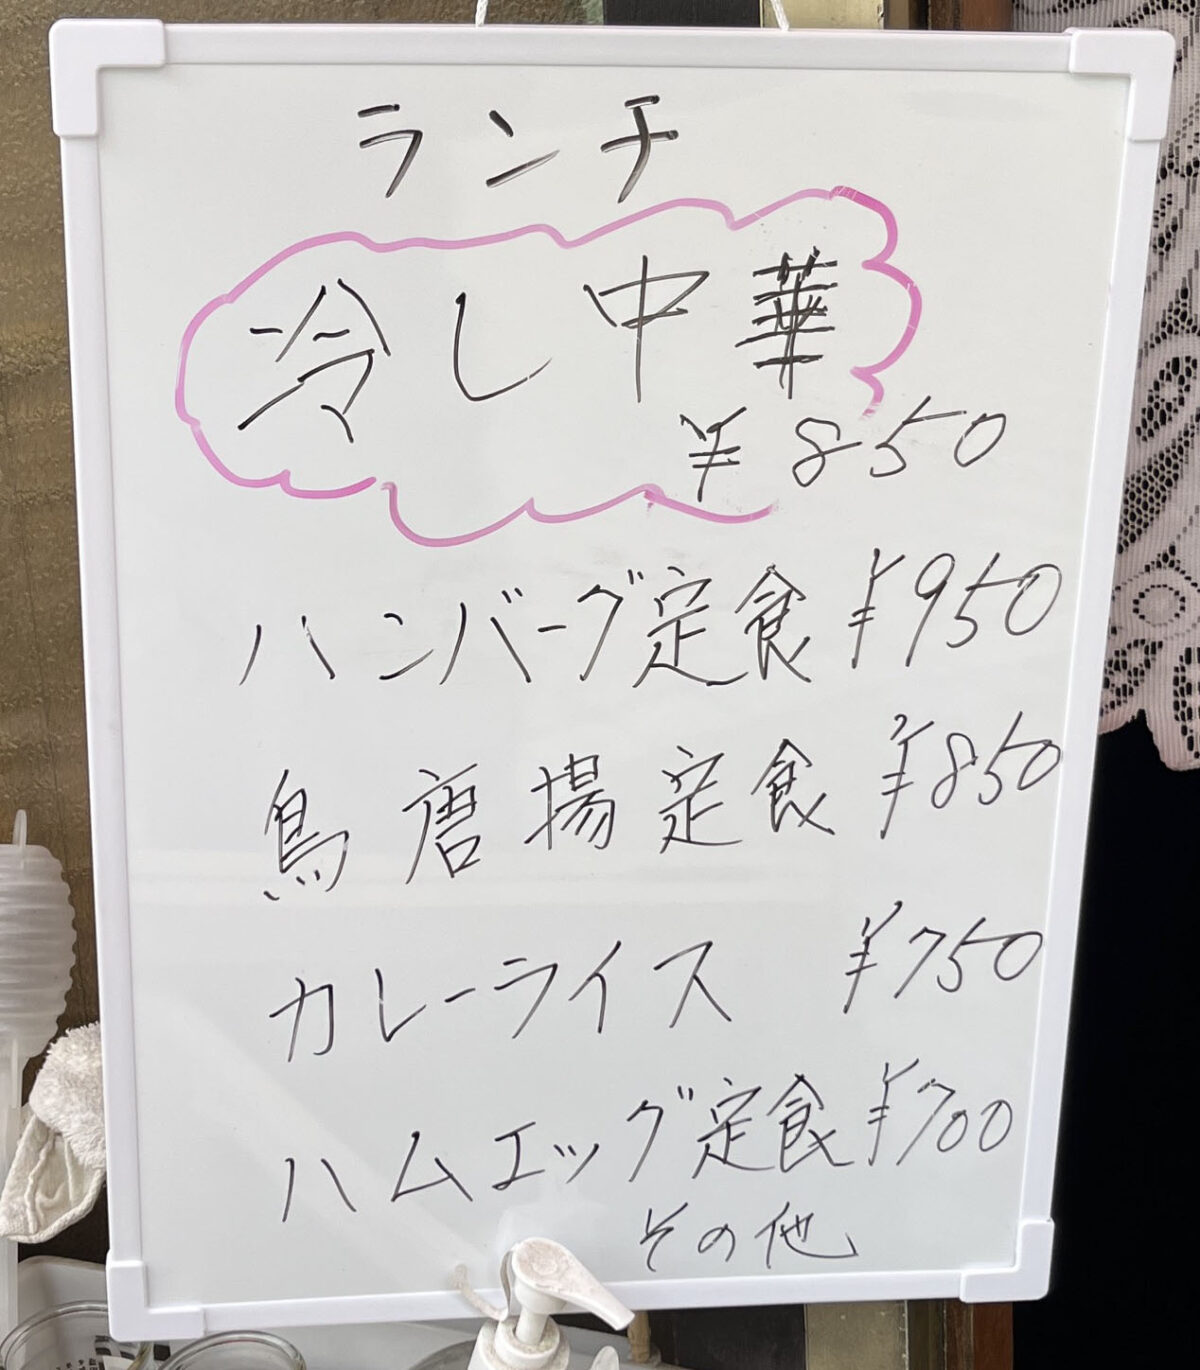 ランチ
冷し中華
¥850
ハンバーグ定食 ¥950
鳥唐揚定食 ¥850
カレーライス ¥750
ハムエッグ定食 ¥700
その他